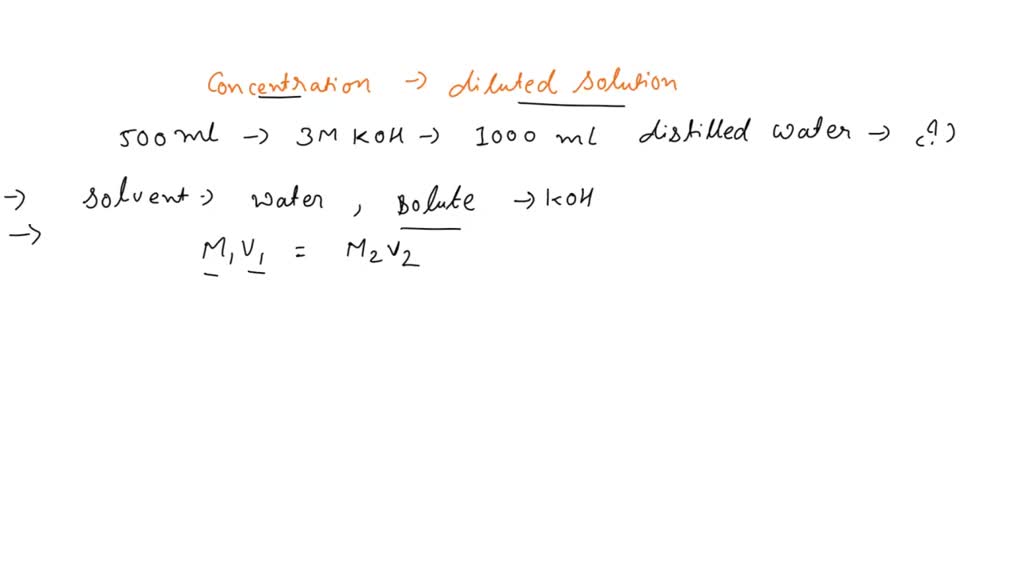 Concentration → diluted solution
500 ml → 3M KOH → 1000 ml distilled water → (?)
→ solvent → water, solute → KOH
→ M₁V₁ = M₂V₂